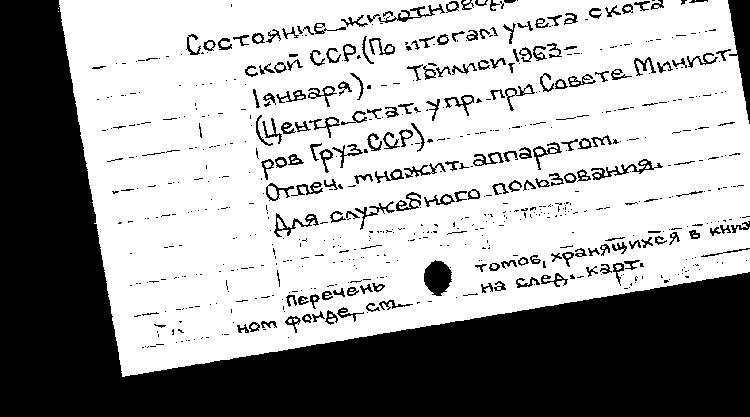 Состояние животновод
ской ССР. (По итогам учета скота
1 января). Тбилиси, 1963-
(Центр. стат. упр. при Совете Минист-
ров Груз. ССР).
Отпеч. множит. аппаратом.
Для служебного пользования.
Перечень томов, хранящихся в книж
ном фонде, см. на след. карт.